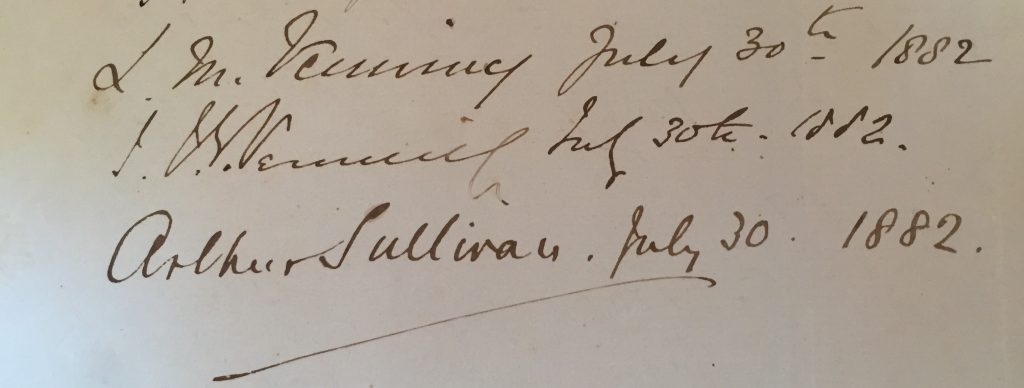 L. M. Venning July 30th 1882
J. W. Venning July 30th. 1882.
Arthur Sullivan. July 30. 1882.